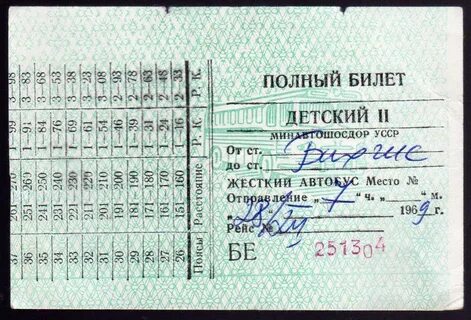 37 261–270 1–99 3–98
36 251–260 1–91 3–83
35 241–250 1–84 3–68
34 231–240 1–76 3–53
33 221–230 1–69 3–38
32 211–220 1–61 3–23
31 201–210 1–54 3–08
30 191–200 1–46 2–93
29 181–190 1–39 2–78
28 171–180 1–31 2–63
27 161–170 1–24 2–48
26 151–160 1–16 2–33
Поясы Расстояние Р. К. Р. К.
ПОЛНЫЙ БИЛЕТ
ДЕТСКИЙ II
МИНАВТОШОСДОР УССР
От ст.
до ст.
ЖЕСТКИЙ АВТОБУС Место №
Отправление „ 7 " ч. „ " м.
„ 28 " 1969 г.
Рейс №
БЕ 251304